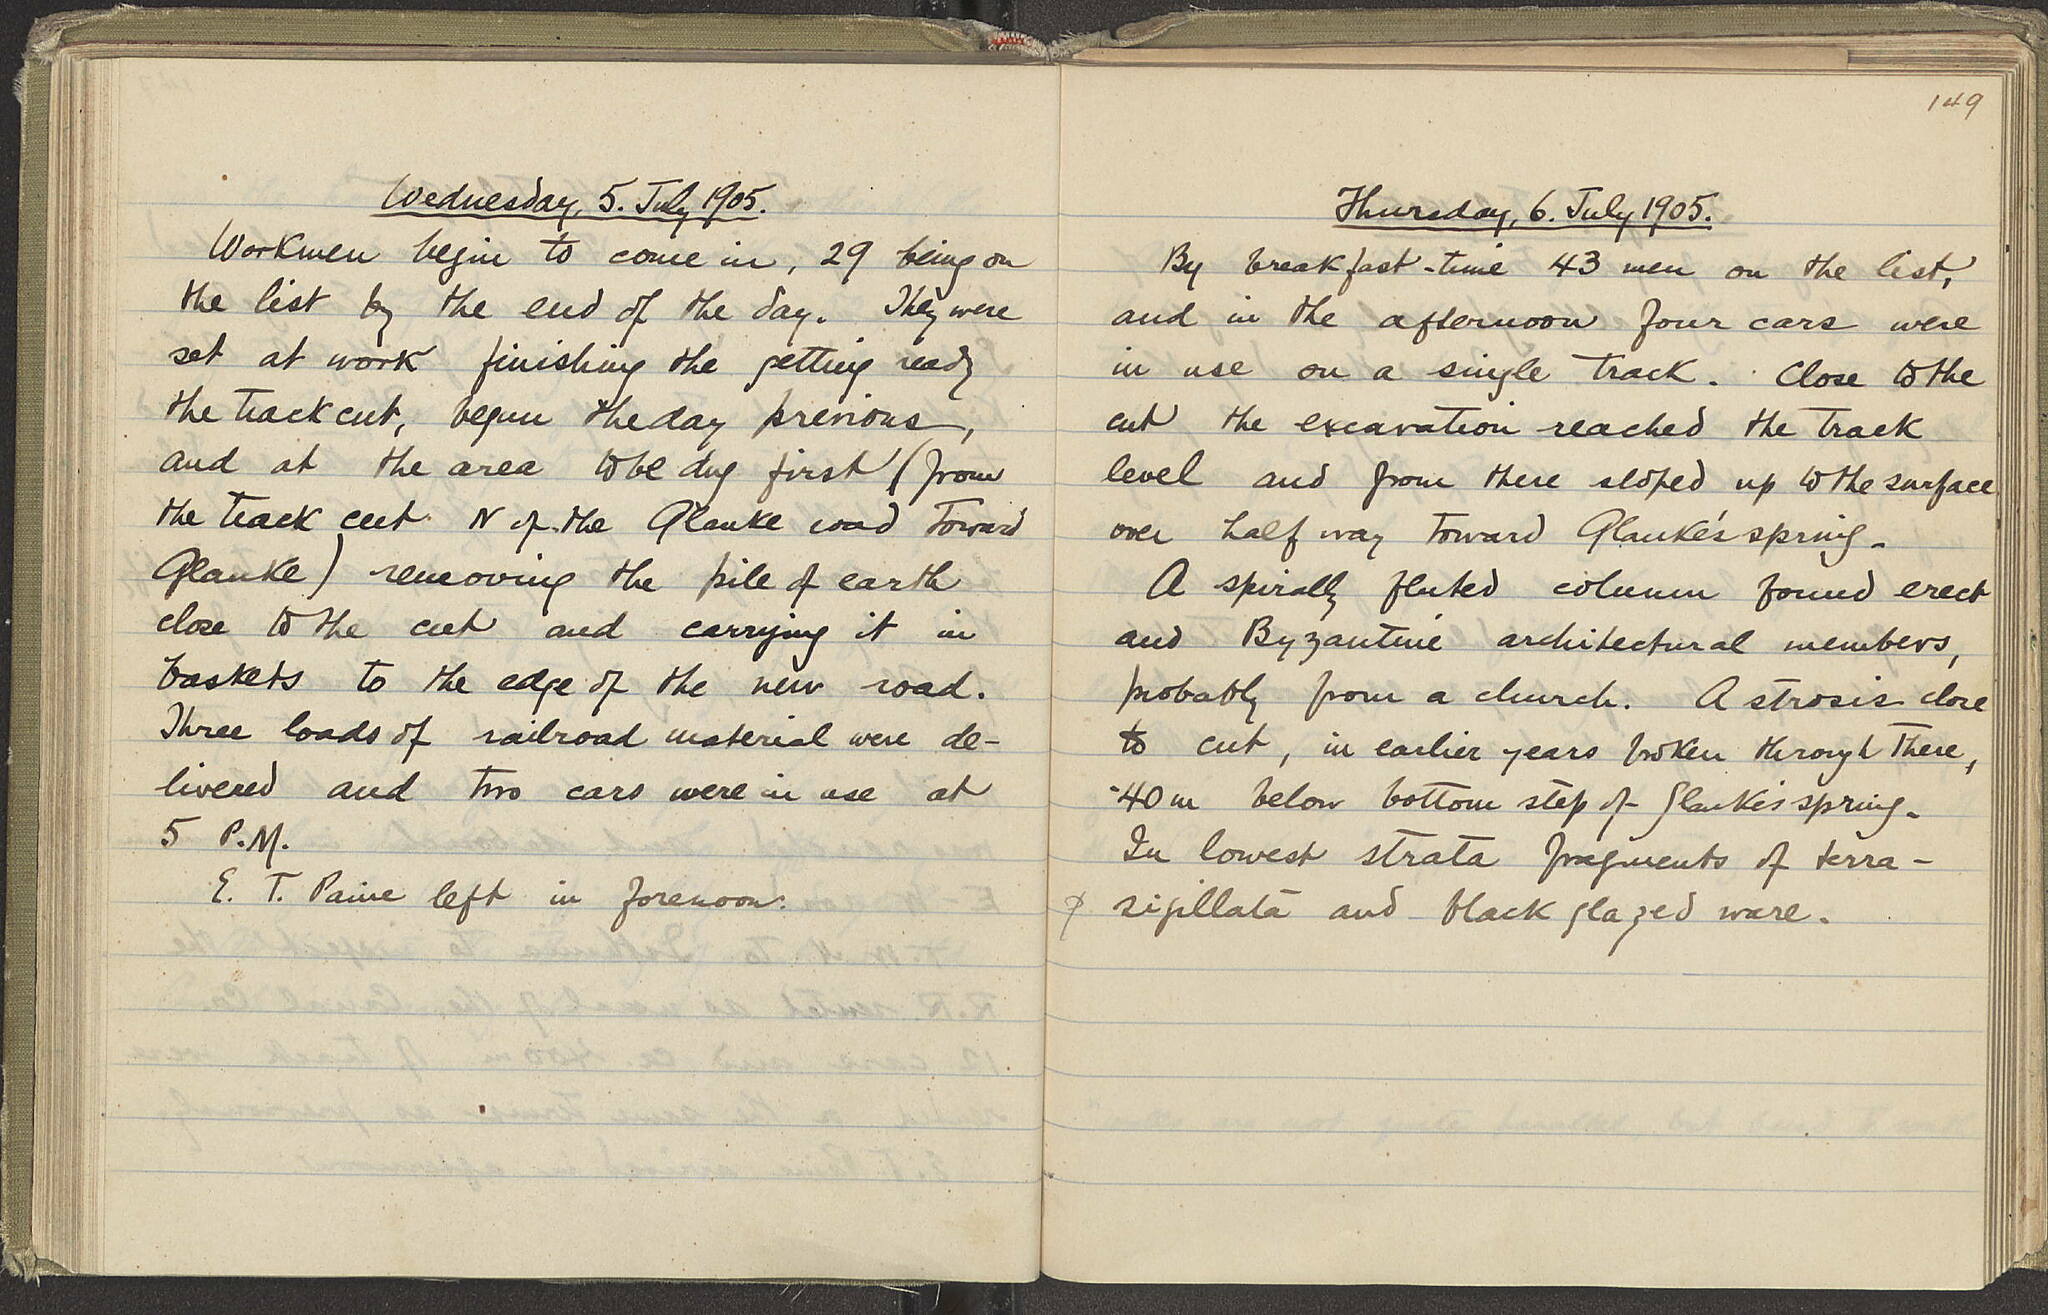 Wednesday, 5. July 1905.
Workmen begin to come in, 29 being on
the list by the end of the day. They were
set at work finishing the getting ready
the track cut, begun the day previous,
and at the area to be dug first (from
the track cut N of the Glauke road toward
Glauke) removing the pile of earth
close to the cut and carrying it in
baskets to the edge of the new road.
Three loads of railroad material were de-
livered and two cars were in use at
5 P.M.
E. T. Paine left in forenoon.
149
Thursday, 6. July 1905.
By breakfast-time 43 men on the list,
and in the afternoon four cars were
in use on a single track. Close to the
cut the excavation reached the track
level and from there sloped up to the surface
over half way toward Glauke's spring.
A spirally fluted column found erect
and Byzantine architectural members,
probably from a church. A strosis close
to cut, in earlier years broken through there,
·40 m below bottom step of Glauke's spring.
In lowest strata fragments of terra-
sigillata and black glazed ware.